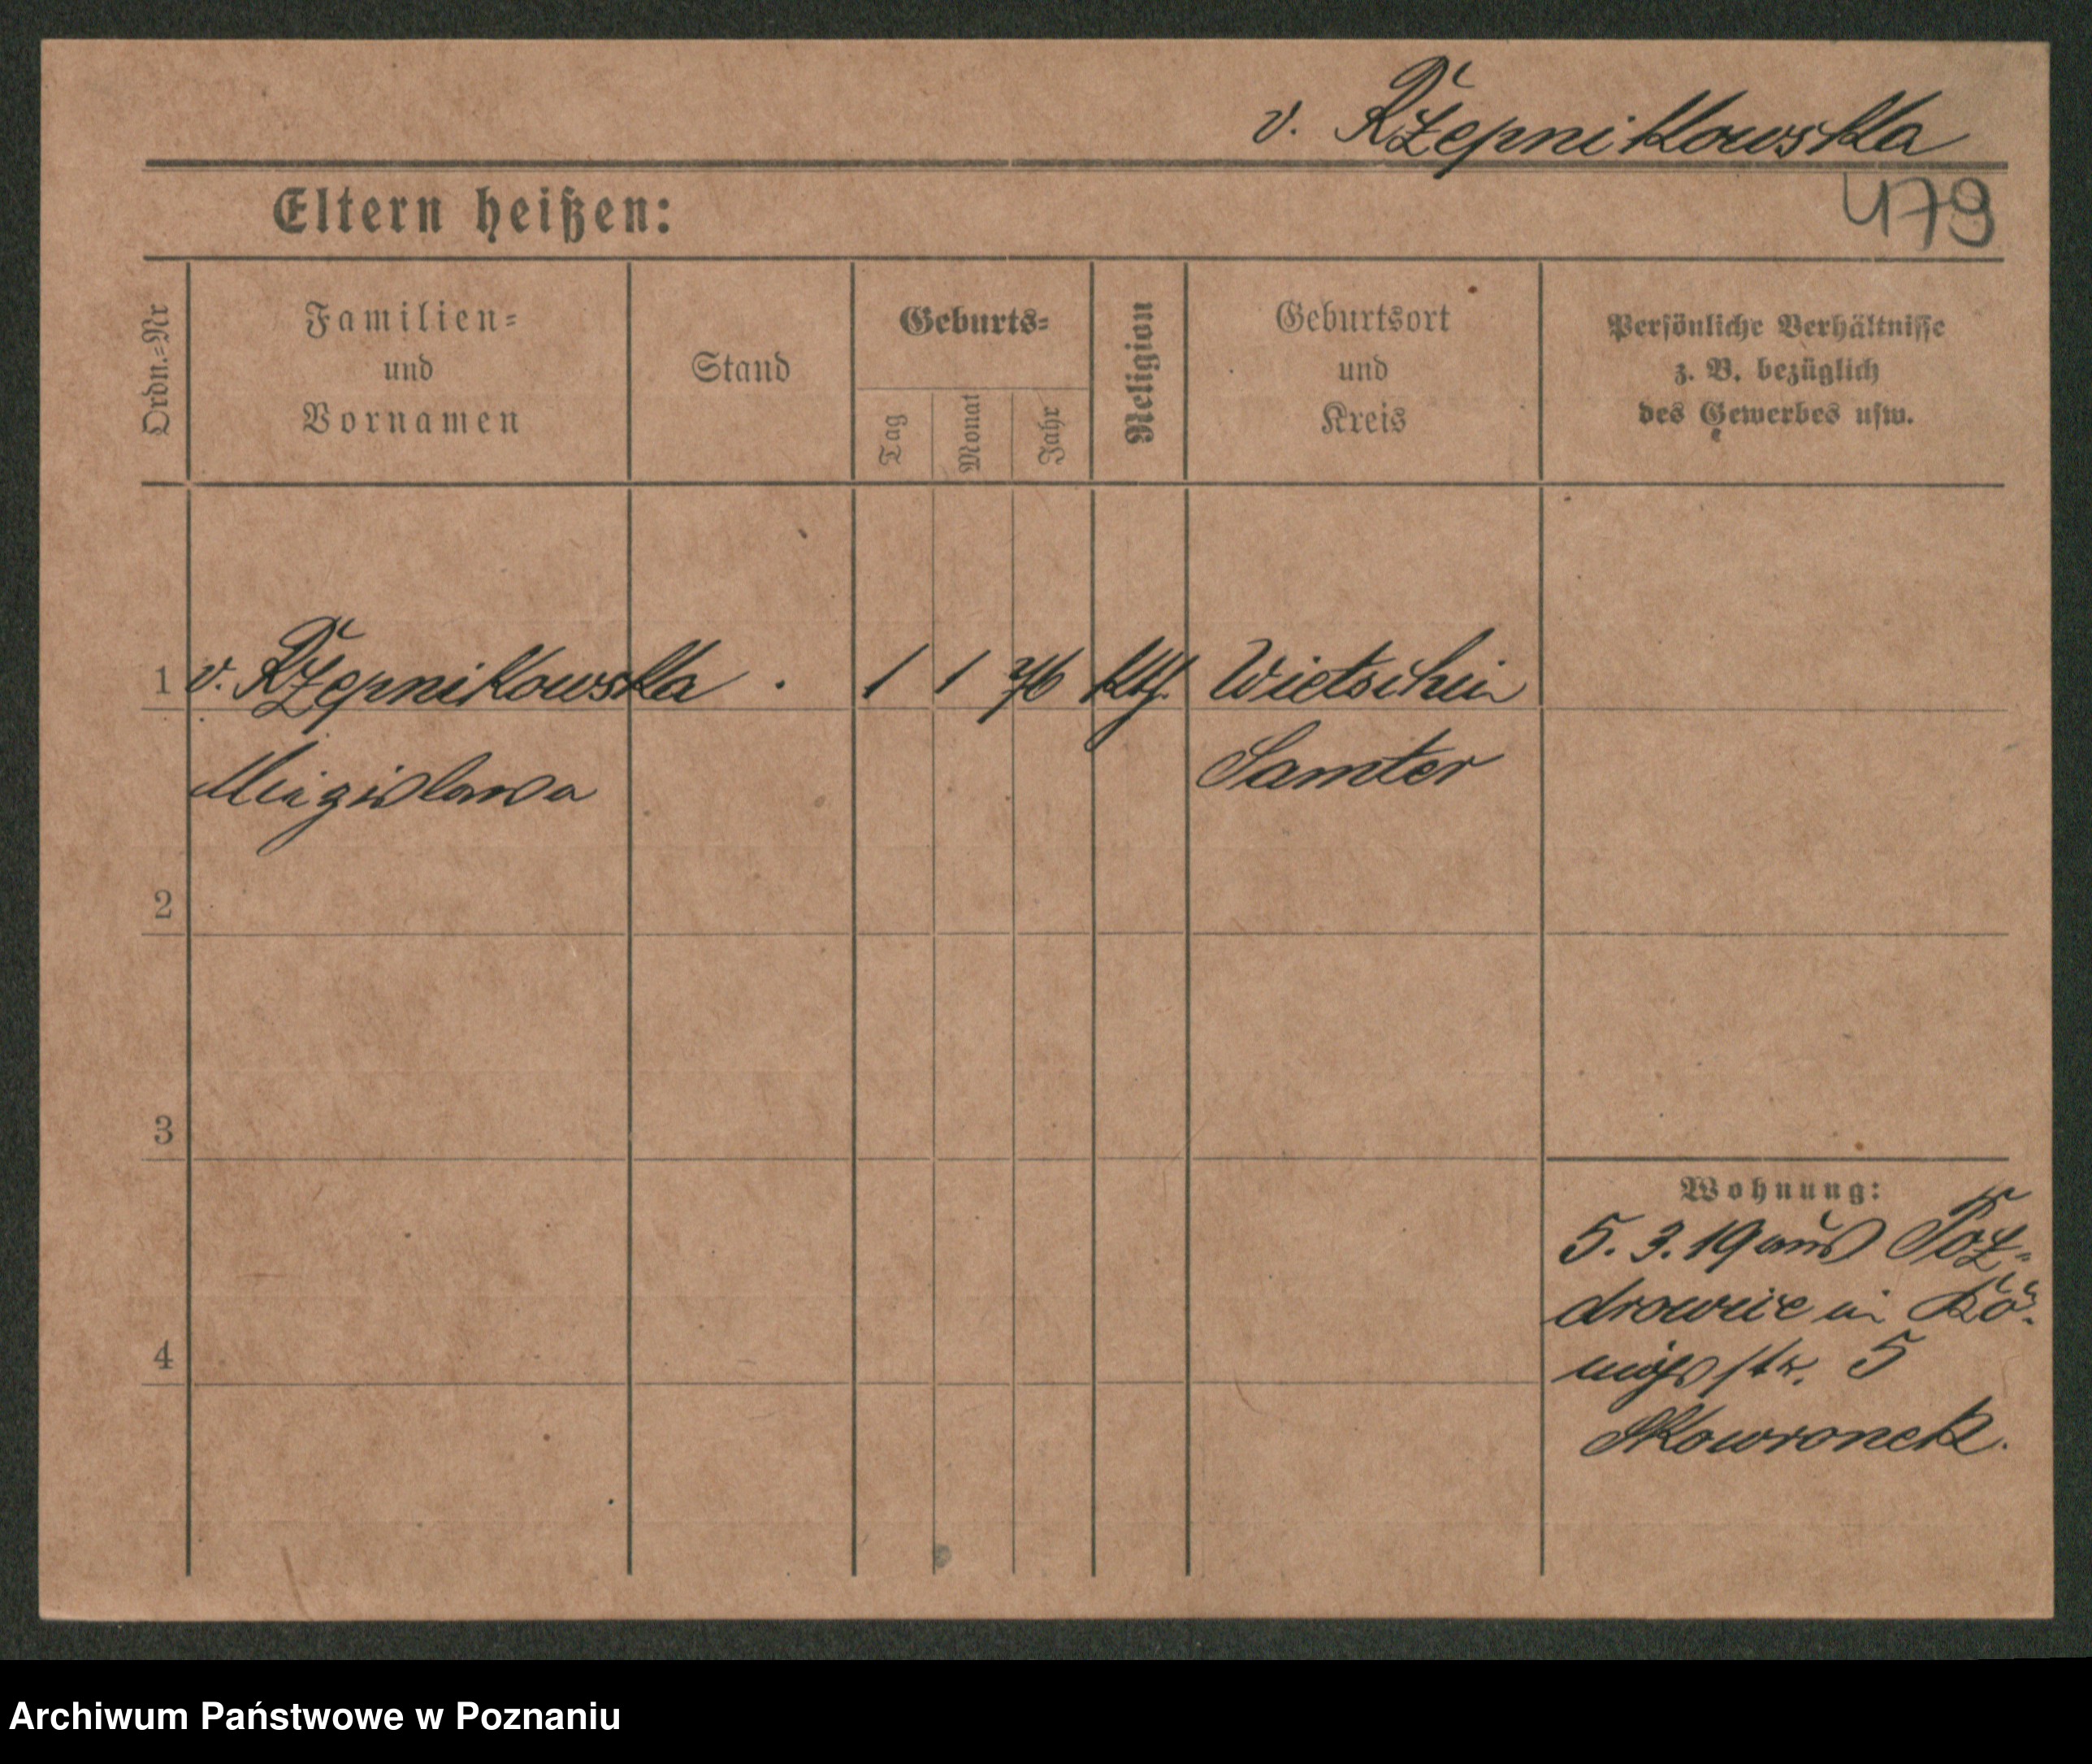 v. Rzepnikowska
Eltern heißen:
479
Ordn.=Nr
Familien=
und
Vornamen
Stand
Geburts=
Tag
Monat
Jahr
Religion
Geburtsort
und
Kreis
Persönliche Verhältnisse
z. B. bezüglich
des Gewerbes usw.
1 v. Rzepnikowska . 1 1 76 kth.
Samter
2
3
4
Wohnung:
5. 3. 19 aus Poz=
drowice in Kö=
nigsstr. 5
Skowronek.
Archiwum Państwowe w Poznaniu